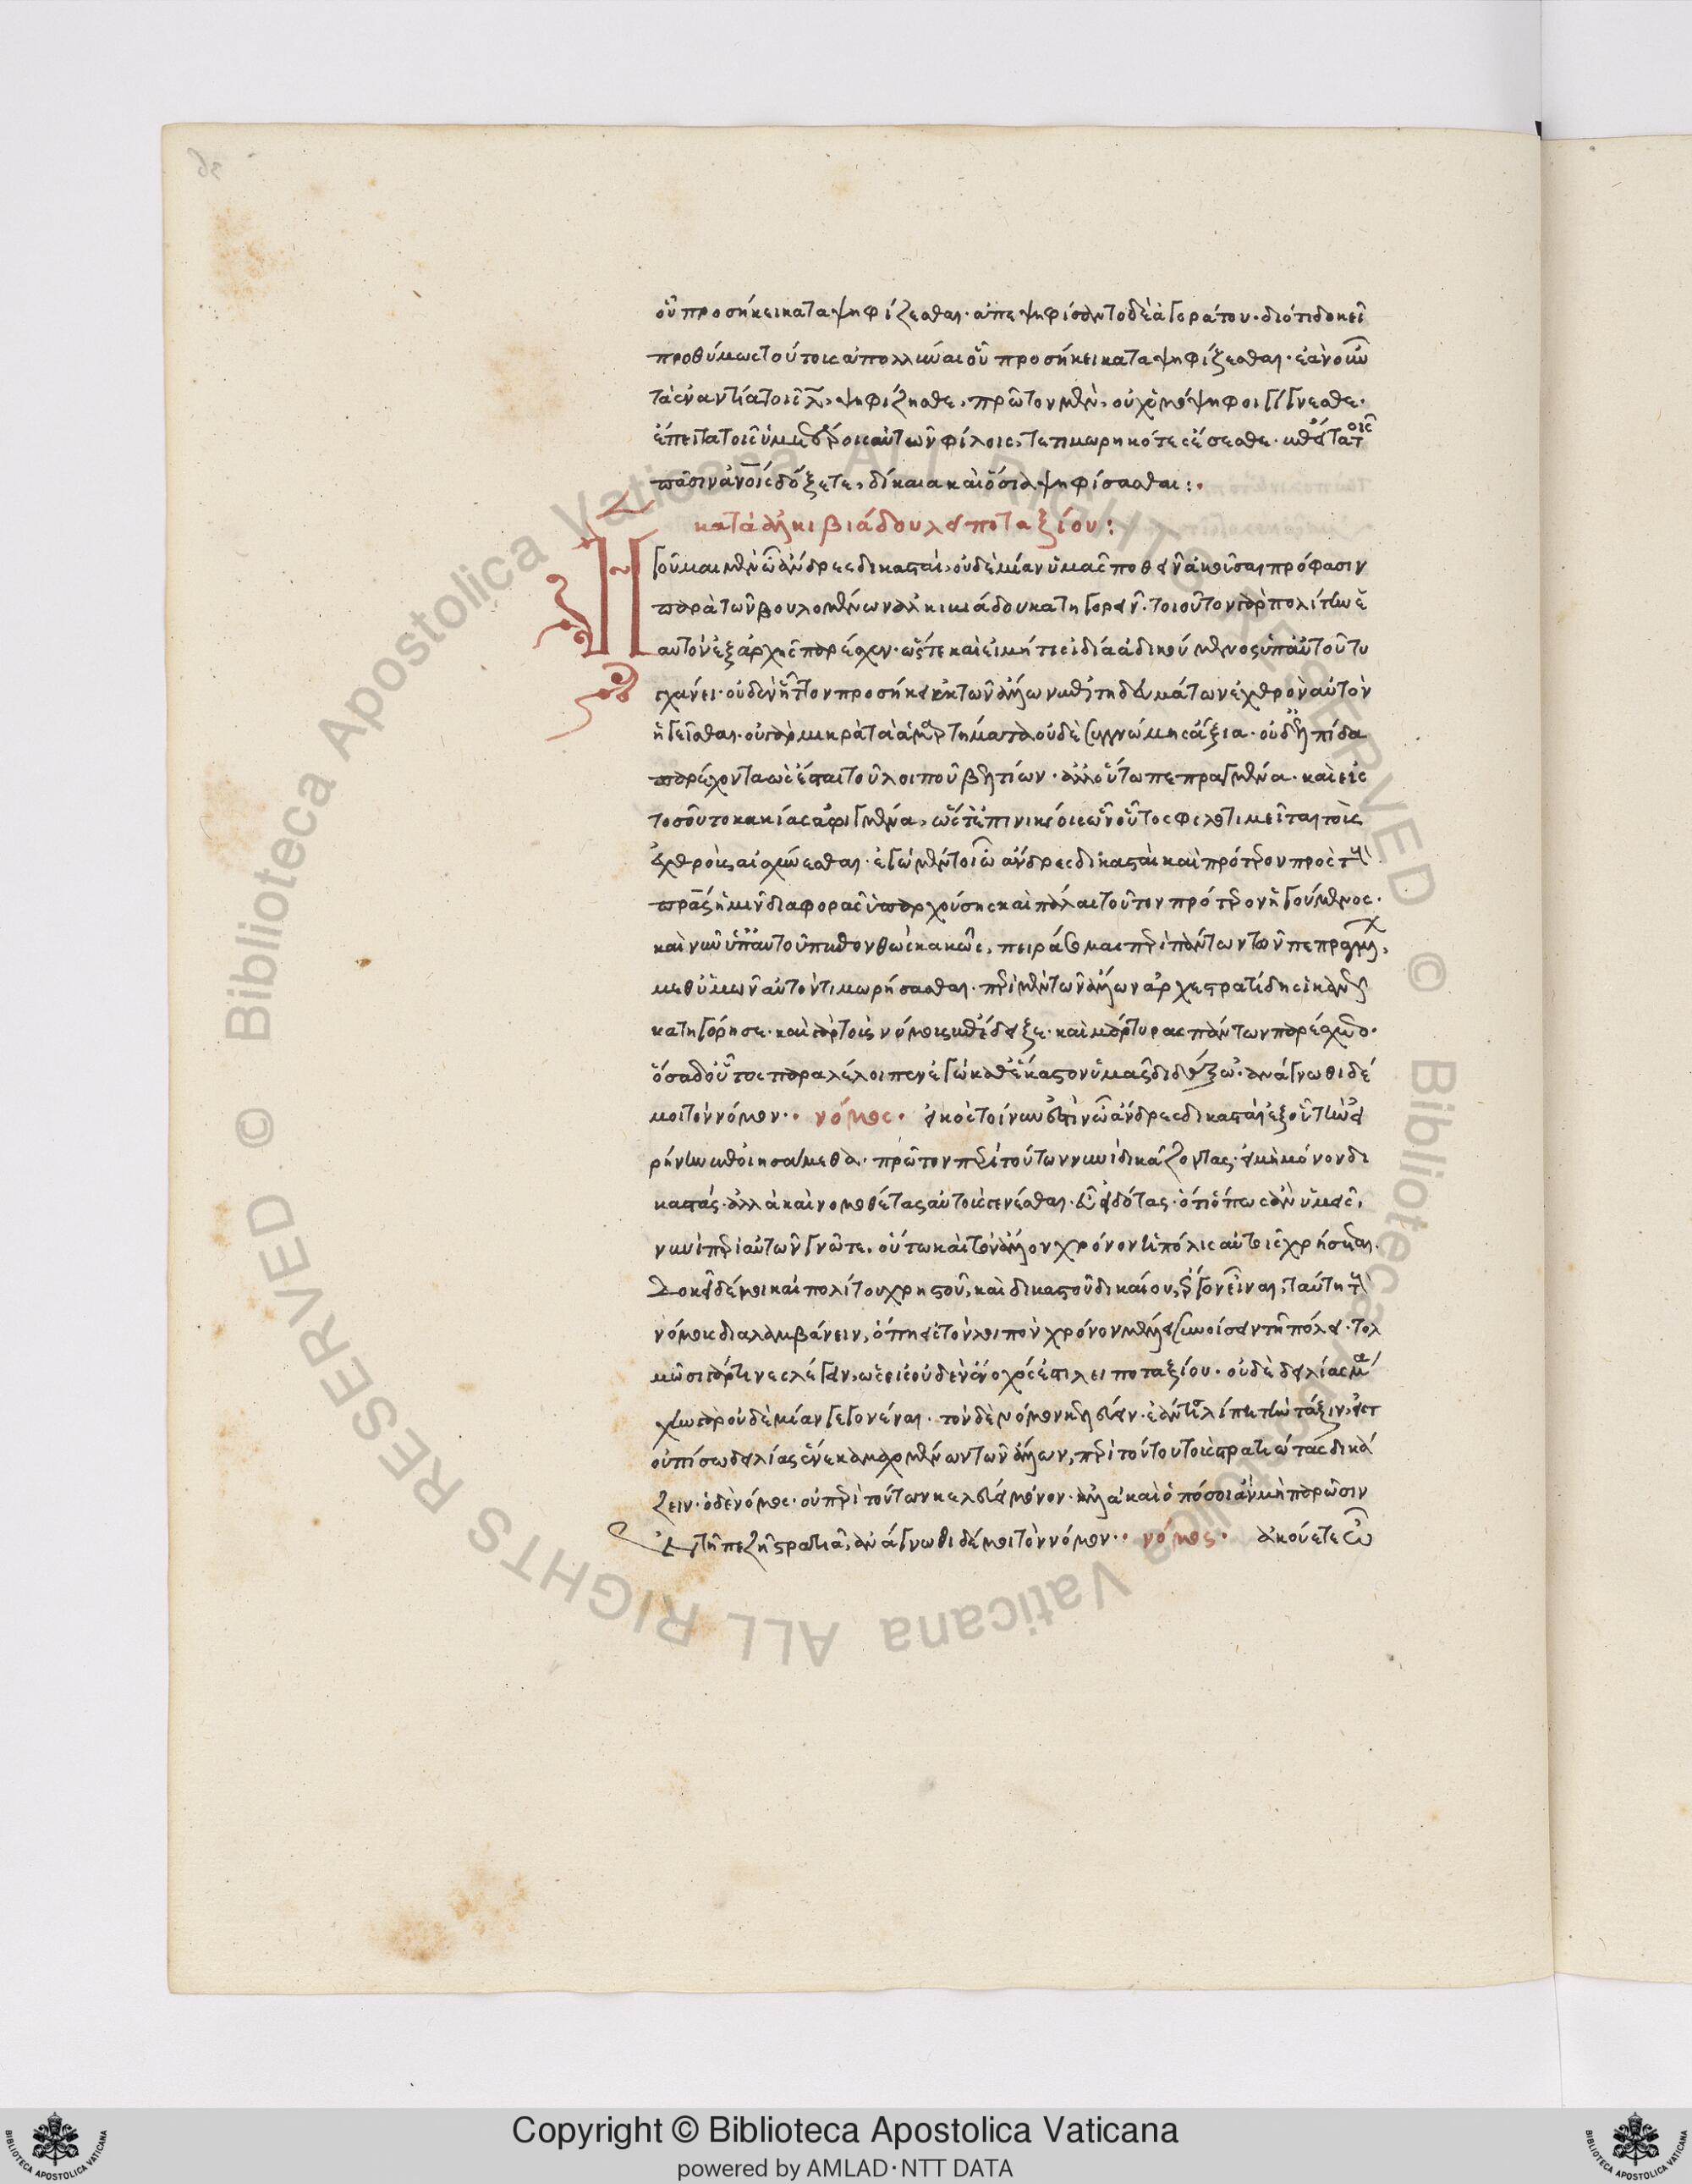 οὗ προσήκει καταψηφίζεσθαι· ἀπεψηφίσαντο δὲ ἀγοράτου· διότι δοκεῖ
προθύμως τούτοις ἀπολλύναι οὗ προσήκει καταψηφίζεσθαι· ἐὰν οὖν
τὰ ἐναντία τοῖς λ, ψηφίζησθε, πρῶτον μὲν, οὐχ ὁμόψηφοι γίγνεσθε·
ἔπειτα τοῖς ὑμετέροις αὐτῶν φίλοις, τετιμωρηκότες ἔσεσθε·
πᾶσιν ἀνοις δόξετε, δίκαια καὶ ὅσια ψηφίσασθαι:·
κατὰ ἀλκιβιάδου λειποταξίου:
Ηγοῦμαι μὲν ὦ ἄνδρες δικασταὶ, οὐδεμίαν ὑμᾶς ποθεῖν ἀκοῦσαι πρόφασιν
παρὰ τῶν βουλομένων ἀλκιβιάδου κατηγορεῖν· τοιοῦτον γὰρ πολίτην ἑ
αυτὸν ἐξ ἀρχῆς παρέσχεν· ὥστε καὶ εἰ μή τις ἰδία ἀδικούμενος ὑπ' αὐτοῦ τυ
γχάνει· οὐδὲν ἧττον προσήκει ἐκ τῶν ἄλλων ἐπιτηδευμάτων ἐχθρὸν αὐτὸν
ἡγεῖσθαι· οὐ γὰρ μικρὰ τὰ ἁμαρτήματα οὐδὲ συγγνώμης ἄξια· οὐδ' ἐλπίδα
παρέχοντα ὡς ἔσται τοῦ λοιποῦ βελτίων· ἀλλ' οὕτω πεπραγμένα· καὶ εἰς
τοσοῦτο κακίας ἀφιγμένα, ὥστ' ἐπινικίοις ὧν οὗτος φιλοτιμεῖται τοὺς
ἐχθροὺς αἰσχύνεσθαι· ἐγὼ μέντοι ὦ ἄνδρες δικασταὶ καὶ πρότερον πρὸς τοὺς
πρας ἡμῖν διαφορᾶς ὑπαρχούσης καὶ πάλαι τοῦτον πρότερον ἡγούμενος·
καὶ νῦν ὑπ' αὐτοῦ πεπονθὼς κακῶς, πειράσομαι περὶ πάντων τῶν πεπραγμένων,
μεθ' ὑμῶν αὐτὸν τιμωρήσασθαι· περὶ μὲν τῶν ἄλλων ἀρχεστρατίδης ἱκανῶς
κατηγόρησε· καὶ γὰρ τοὺς νόμους ἐπέδειξε· καὶ μάρτυρας πάντων παρέσχετο·
ὅσα δ' οὗτος παραλέλοιπεν ἐγὼ καθ' ἕκαστον ὑμᾶς διδάξω· ἀνάγνωθι δέ
μοι τὸν νόμον·· νόμος· εἰκὸς τοίνυν ἐστὶν ὦ ἄνδρες δικασταὶ ἐξ οὗ τὴν εἰ
ρήνην ἐποιησάμεθα· πρῶτον περὶ τούτων νυνὶ δικάζοντας· μὴ μόνον δι
καστὰς· ἀλλὰ καὶ νομοθέτας αὐτοὺς γενέσθαι· εὖ εἰδότας· ὅτι ὅπως ἂν ὑμεῖς,
νυνὶ περὶ αὐτῶν γνῶτε, οὕτω καὶ τὸν ἄλλον χρόνον ἡ πόλις αὐτοῖς χρήσεται.
Δοκεῖ δέ μοι καὶ πολίτου χρηστοῦ, καὶ δικαστοῦ δικαίου, ἔργον εἶναι, ταύτη τοὺς
νόμους διαλαμβάνειν, ὅπη εἰς τὸν λοιπὸν χρόνον μέλλει συνοίσειν τῆ πόλει· τολ
μῶσι γάρ τινες λέγειν, ὡς οὐδεὶς ἔνοχός ἐστι λειποταξίου· οὐδὲ δειλίας μά
χην γὰρ οὐδεμίαν γεγονέναι· τὸν δὲ νόμον κελεύειν· ἐάν τις λίπη τὴν τάξιν, εἰς τ
οὐπίσω δειλίας ἕνεκα μαχομένων τῶν ἄλλων, περὶ τούτου τοὺς στρατιώτας δικά
ζειν· ὁ δὲ νόμος· οὐ περὶ τούτων κελεύει μόνον· ἀλλὰ καὶ ὁπόσοι ἂν μὴ παρῶσιν
Ἐν τῆ πεζῆ στρατιᾶ, ἀνάγνωθι δέ μοι τὸν νόμον·· νόμος· ἀκούετε ὦ
© Biblioteca Apostolica Vaticana ALL RIGHTS RESERVED © Biblioteca Apostolica Vaticana ALL RIGHTS RESERVED
Copyright © Biblioteca Apostolica Vaticana
powered by AMLAD·NTT DATA
BIBLIOTECA APOSTOLICA VATICANA
BIBLIOTECA APOSTOLICA VATICANA